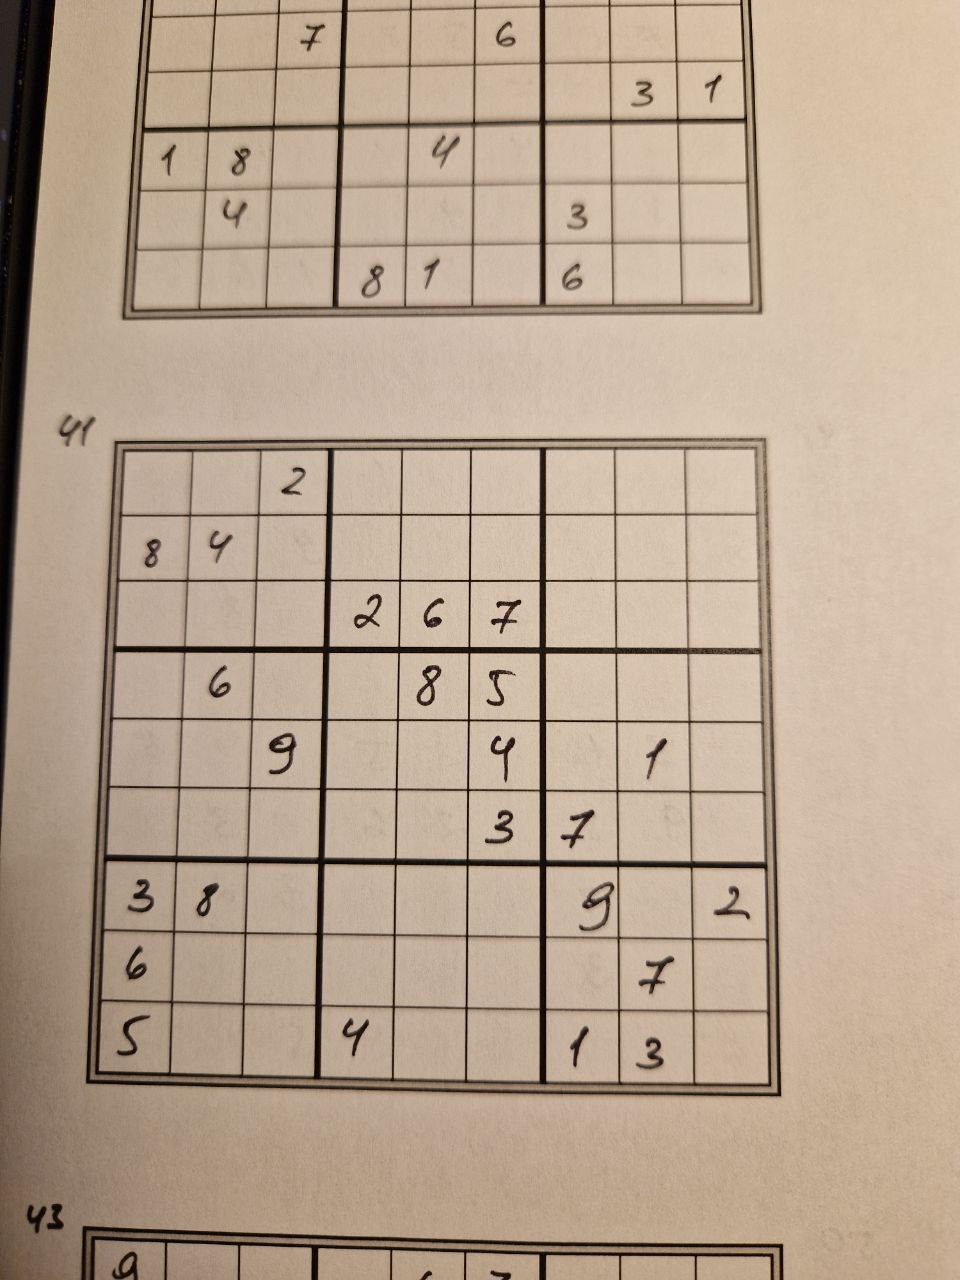 7 6
3 1
1 8 4
4 3
8 1 6
41
2
8 4
2 6 7
6 8 5
9 4 1
3 7
3 8 9 2
6 7
5 4 1 3
43
9